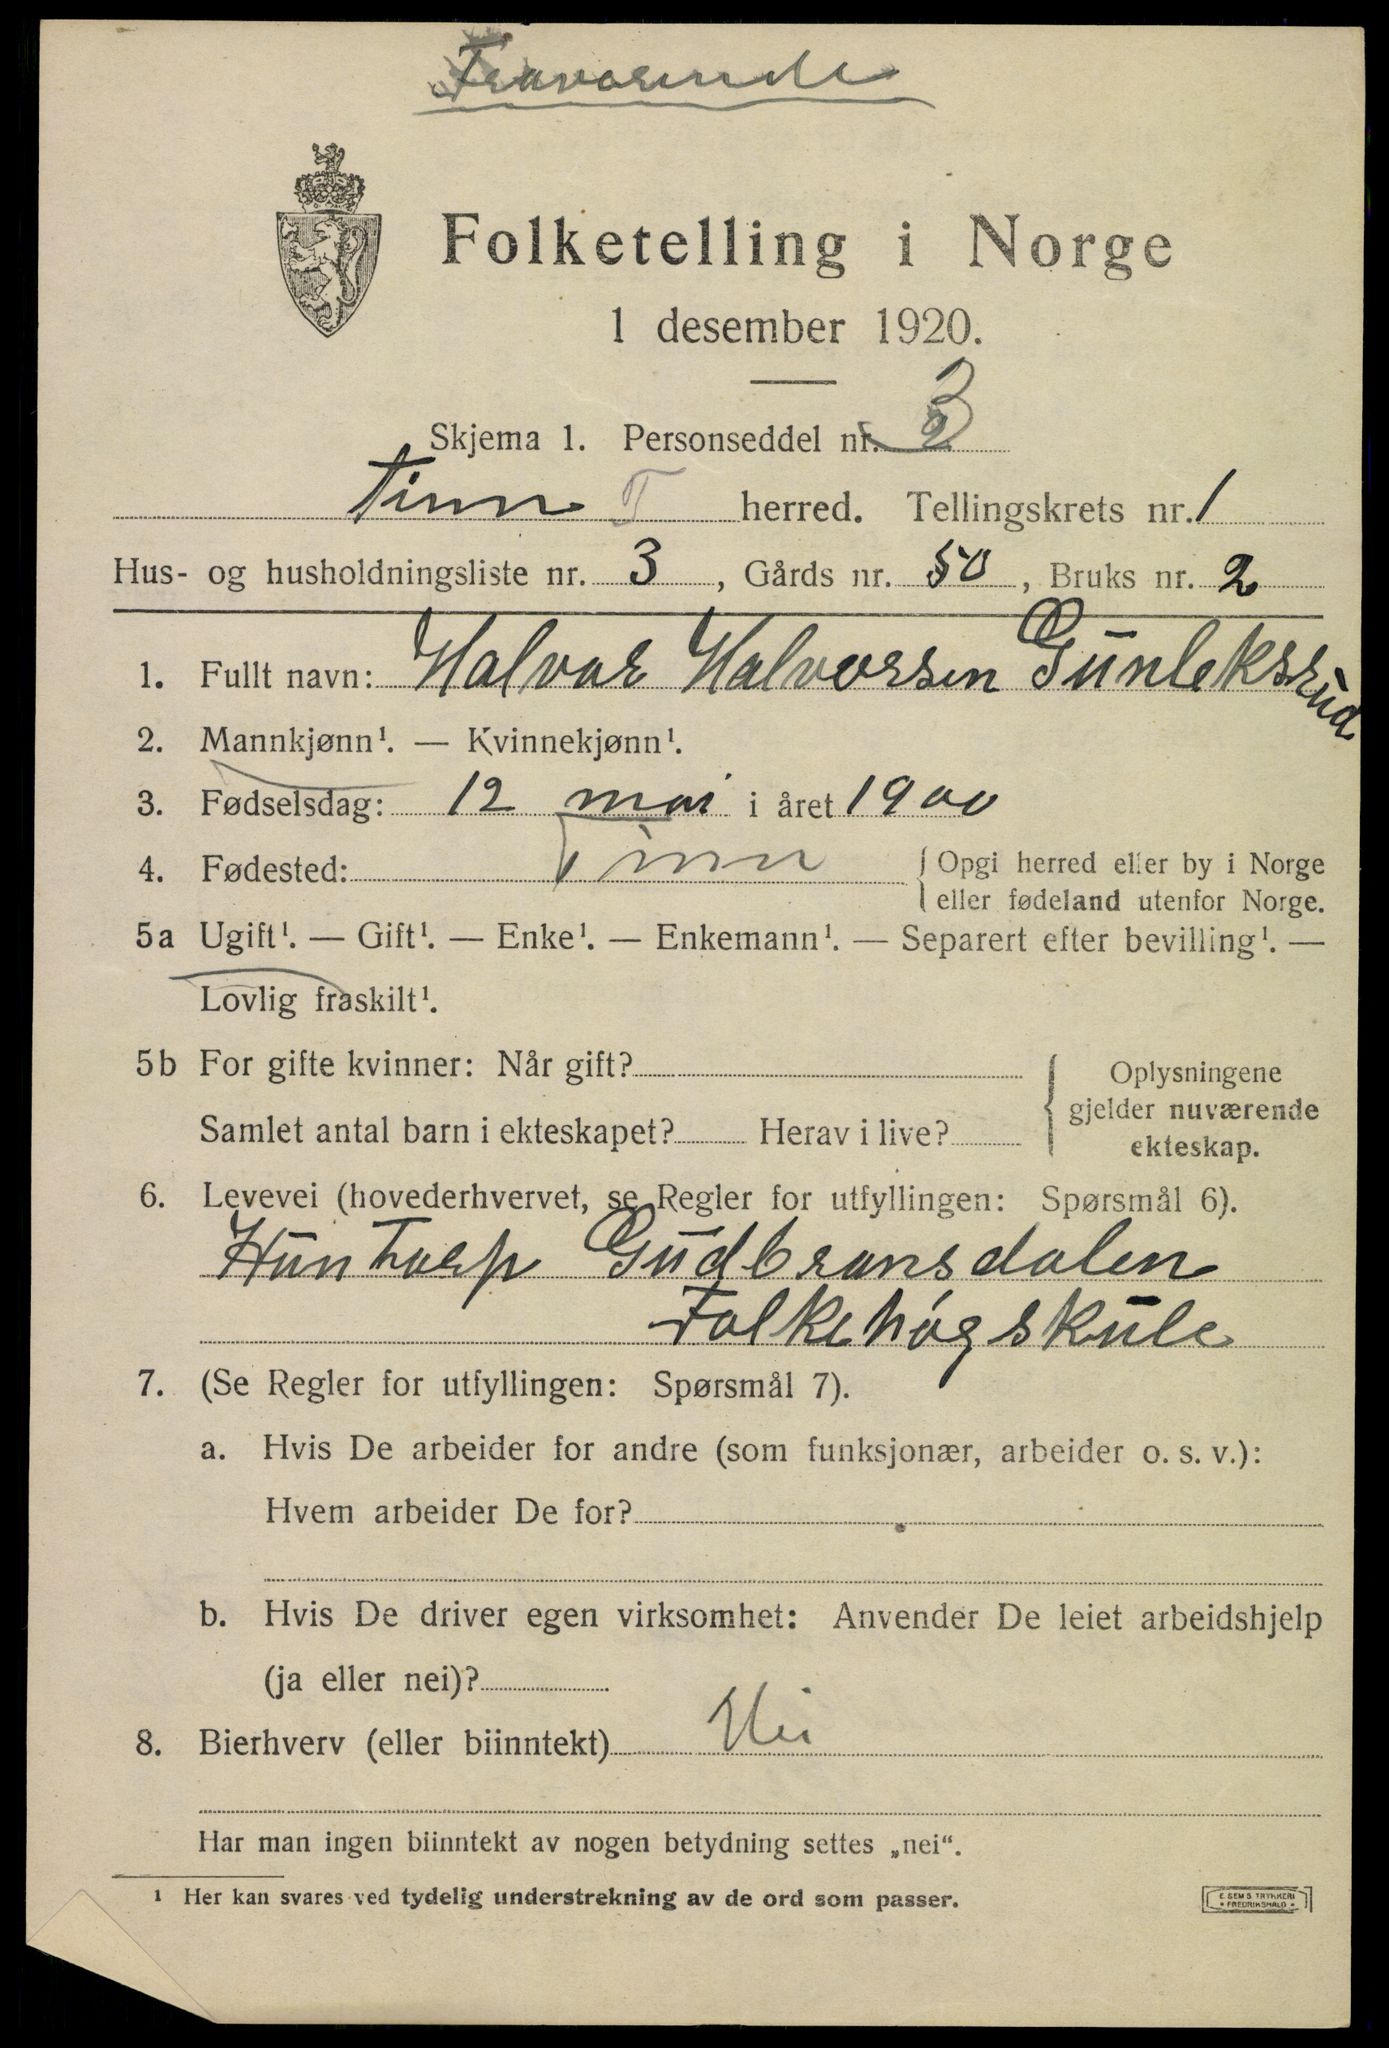 Fraværende
Folketelling i Norge
1 desember 1920.
Skjema 1. Personseddel nr. 3
Tinn T herred. Tellingskrets nr. 1
Hus- og husholdningsliste nr. 3, Gårds nr. 50, Bruks nr. 2
1. Fullt navn: Halvor Halvorsen Gunleksrud
2. Mannkjønn¹. — Kvinnekjønn¹.
3. Fødselsdag: 12 mai i året 1900
4. Fødested: Tinn {Opgi herred eller by i Norge
eller fødeland utenfor Norge.
5a Ugift¹. — Gift¹. — Enke¹. — Enkemann¹. — Separert efter bevilling¹. —
Lovlig fraskilt¹.
5b For gifte kvinner: Når gift?
Samlet antal barn i ekteskapet? Herav i live?
{Oplysningene
gjelder nuværende
ekteskap.
6. Levevei (hovederhvervet, se Regler for utfyllingen: Spørsmål 6).
Huntorp Gudbransdalen
Folkehøgskule
7. (Se Regler for utfyllingen: Spørsmål 7).
a. Hvis De arbeider for andre (som funksjonær, arbeider o. s. v.):
Hvem arbeider De for?
b. Hvis De driver egen virksomhet: Anvender De leiet arbeidshjelp
(ja eller nei)?
8. Bierhverv (eller biinntekt) Nei
Har man ingen biinntekt av nogen betydning settes „nei“.
¹ Her kan svares ved tydelig understrekning av de ord som passer.
E. SEM S. TRYKKERI
* FREDRIKSHALD *